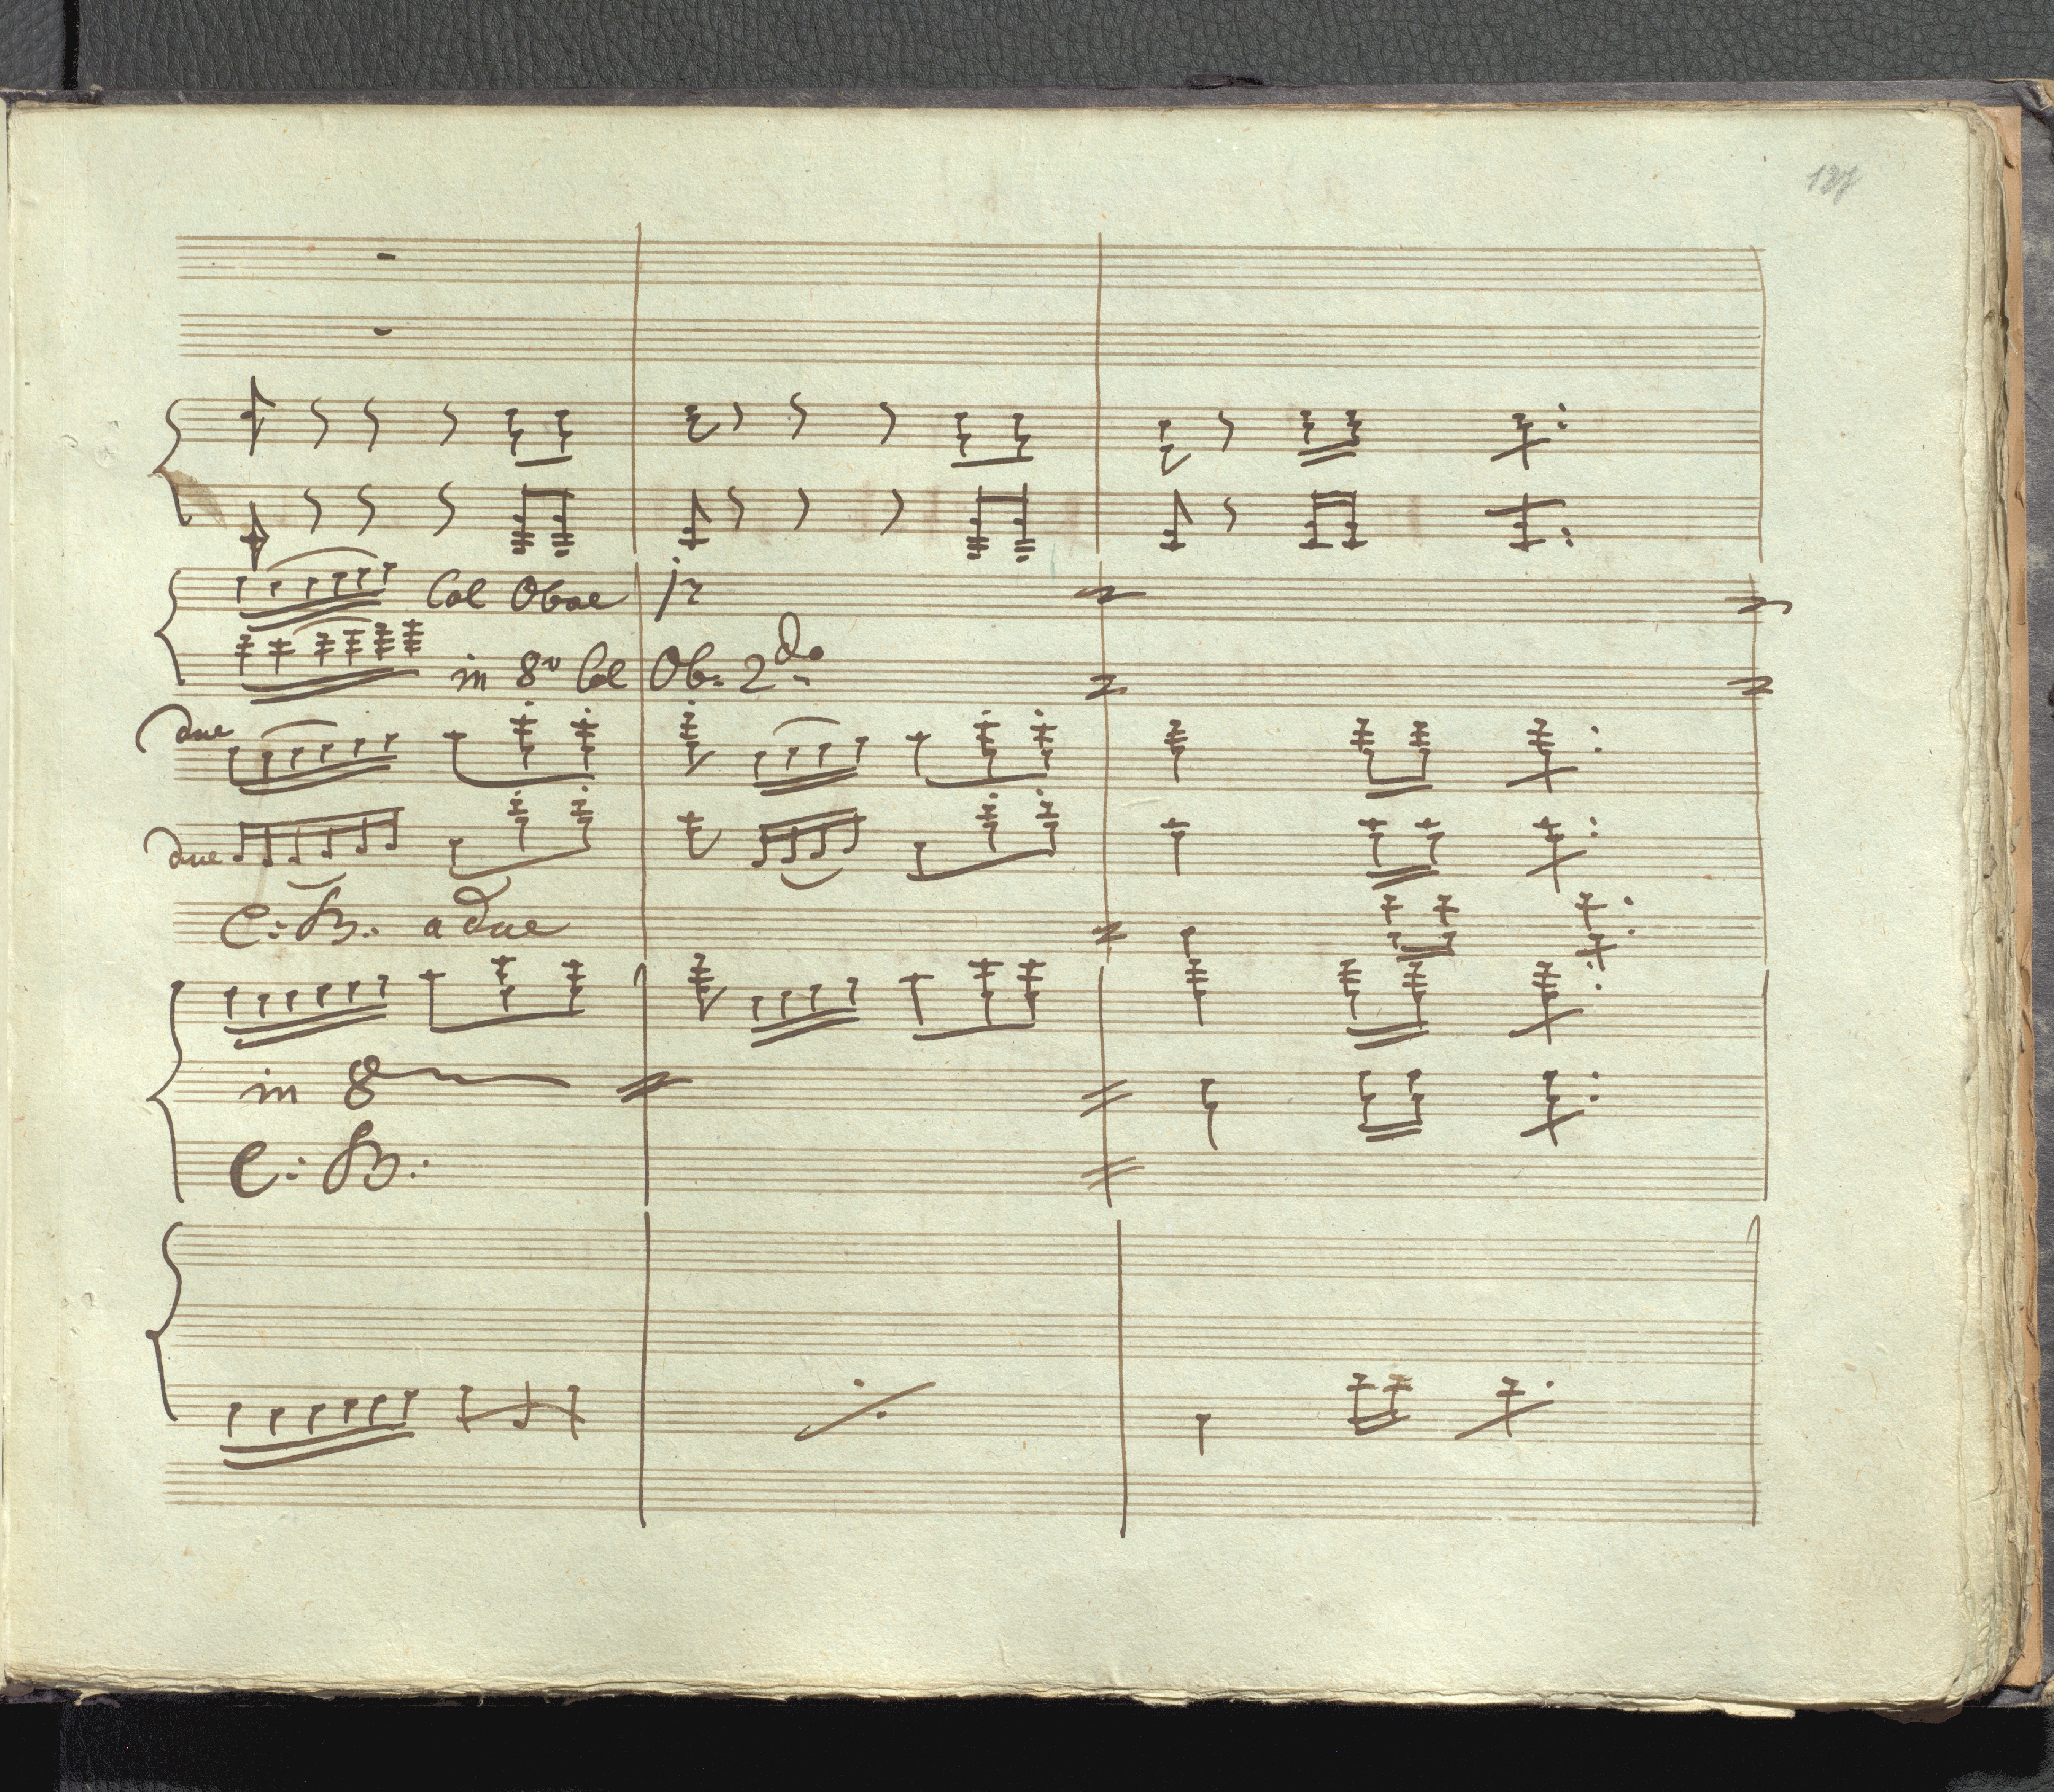 Col Oboe 1º
in 8ª Col Ob: 2do
a due
due
C: B: a due
in 8
C: B: